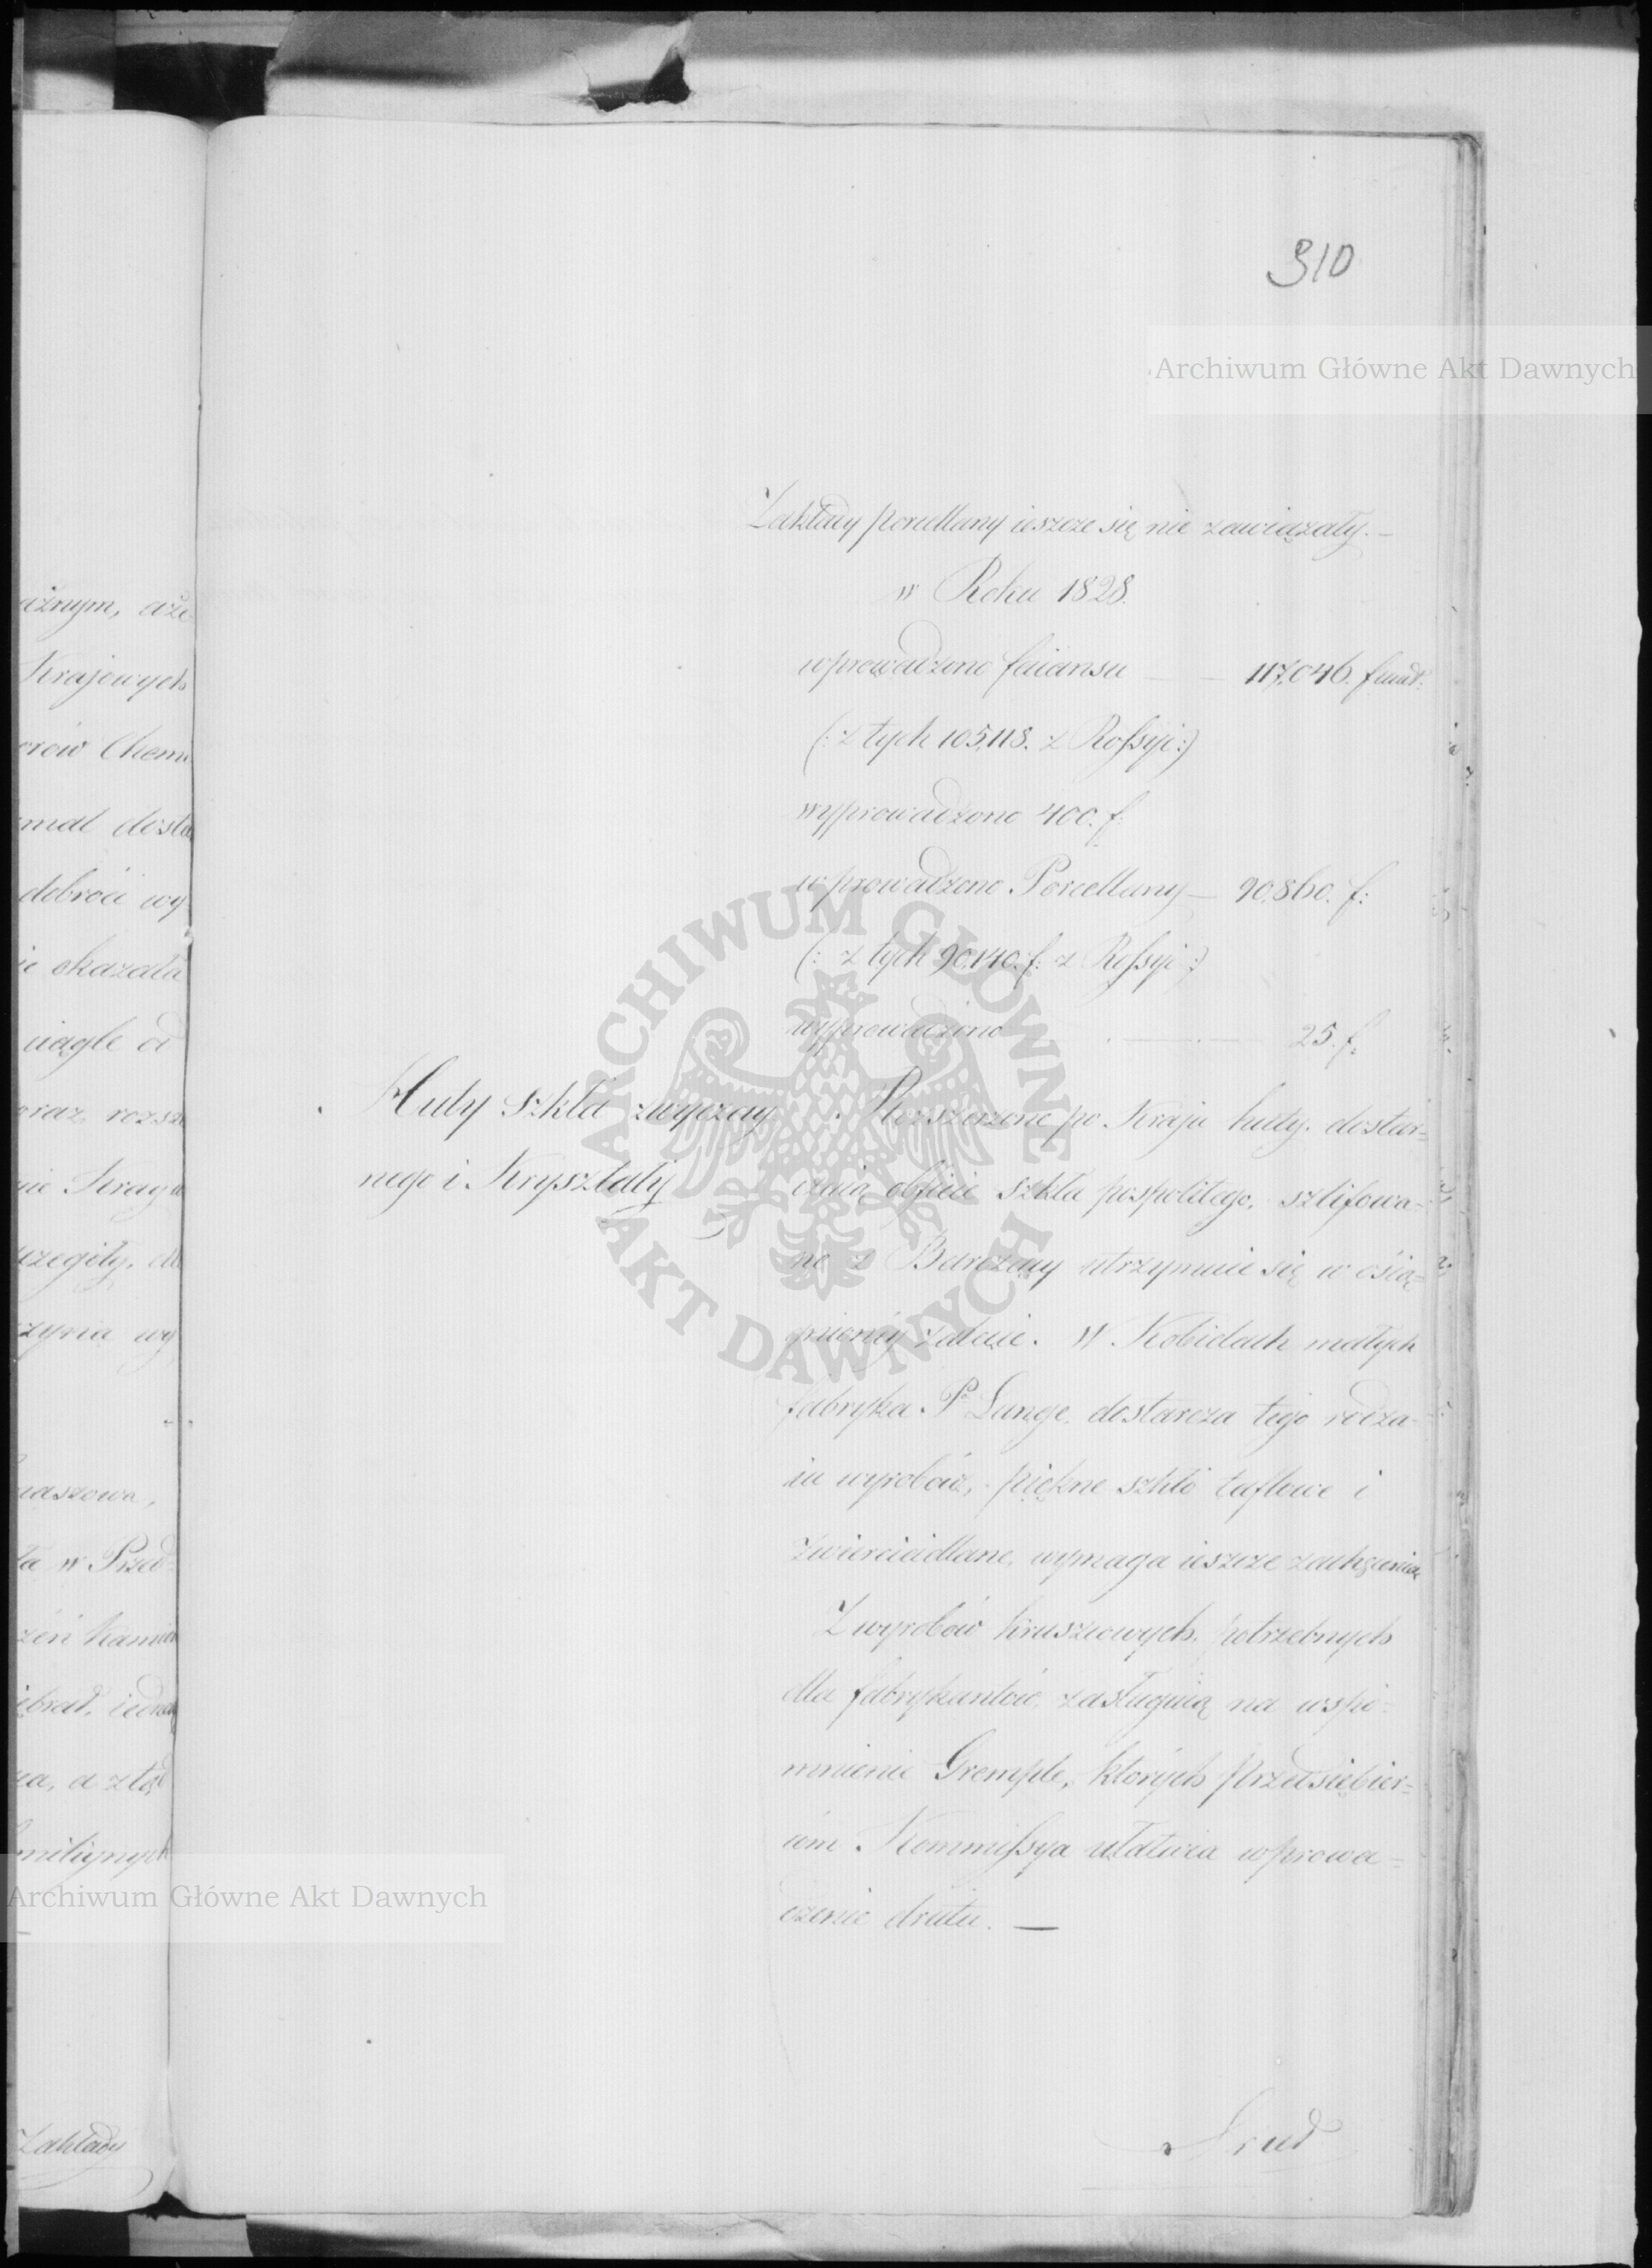 310
Archiwum Główne Akt Dawnych
Zakłady porcellany ieszcze się nie zawiązały. —
w Roku 1828.
wprowadzono faiansu — — 117,046. funt:
(: z tych 105,118. z Rossyi :)
wyprowadzono 400. f:
wprowadzono Porcellany — 90,860. f:
(: z tych 90,140. f: z Rossyi :)
wyprowadzono — 25. f:
Huty szkła zwyczay
nego i Kryształy
Rozszerzone po Kraju huty, dostar=
czaią obficie szkła pospolitego, szlifowa-
ne z Barczący utrzymuie się w osią=
gnioney zalecie. W Kobielach małych
fabryka P. Lange, dostarcza tego rodza-
iu wyrobów, piękne szkło taflowe i
zwierciadlane, wymaga ieszcze zachęcenia
Z wyrobów kruszcowych, potrzebnych
dla fabrykantów, zasługuią na wspo=
mnienie Gremple, których przedsiębier=
com Kommissya ułatwia wprowa=
dzenie drutu. —
ARCHIWUM GŁÓWNE
AKT DAWNYCH
ażnym, aże
Krajowych
orów Chemi
mal dosta
dobroci wy
ie okazała
ciągle od
oraz rozsze
nie Kraga
czegóły, do
czynia wy
maszowa,
ła w Przed
zeń kamien
ębrad, iedna
za, a ztąd
miliynych
Archiwum Główne Akt Dawnych
Zakłady